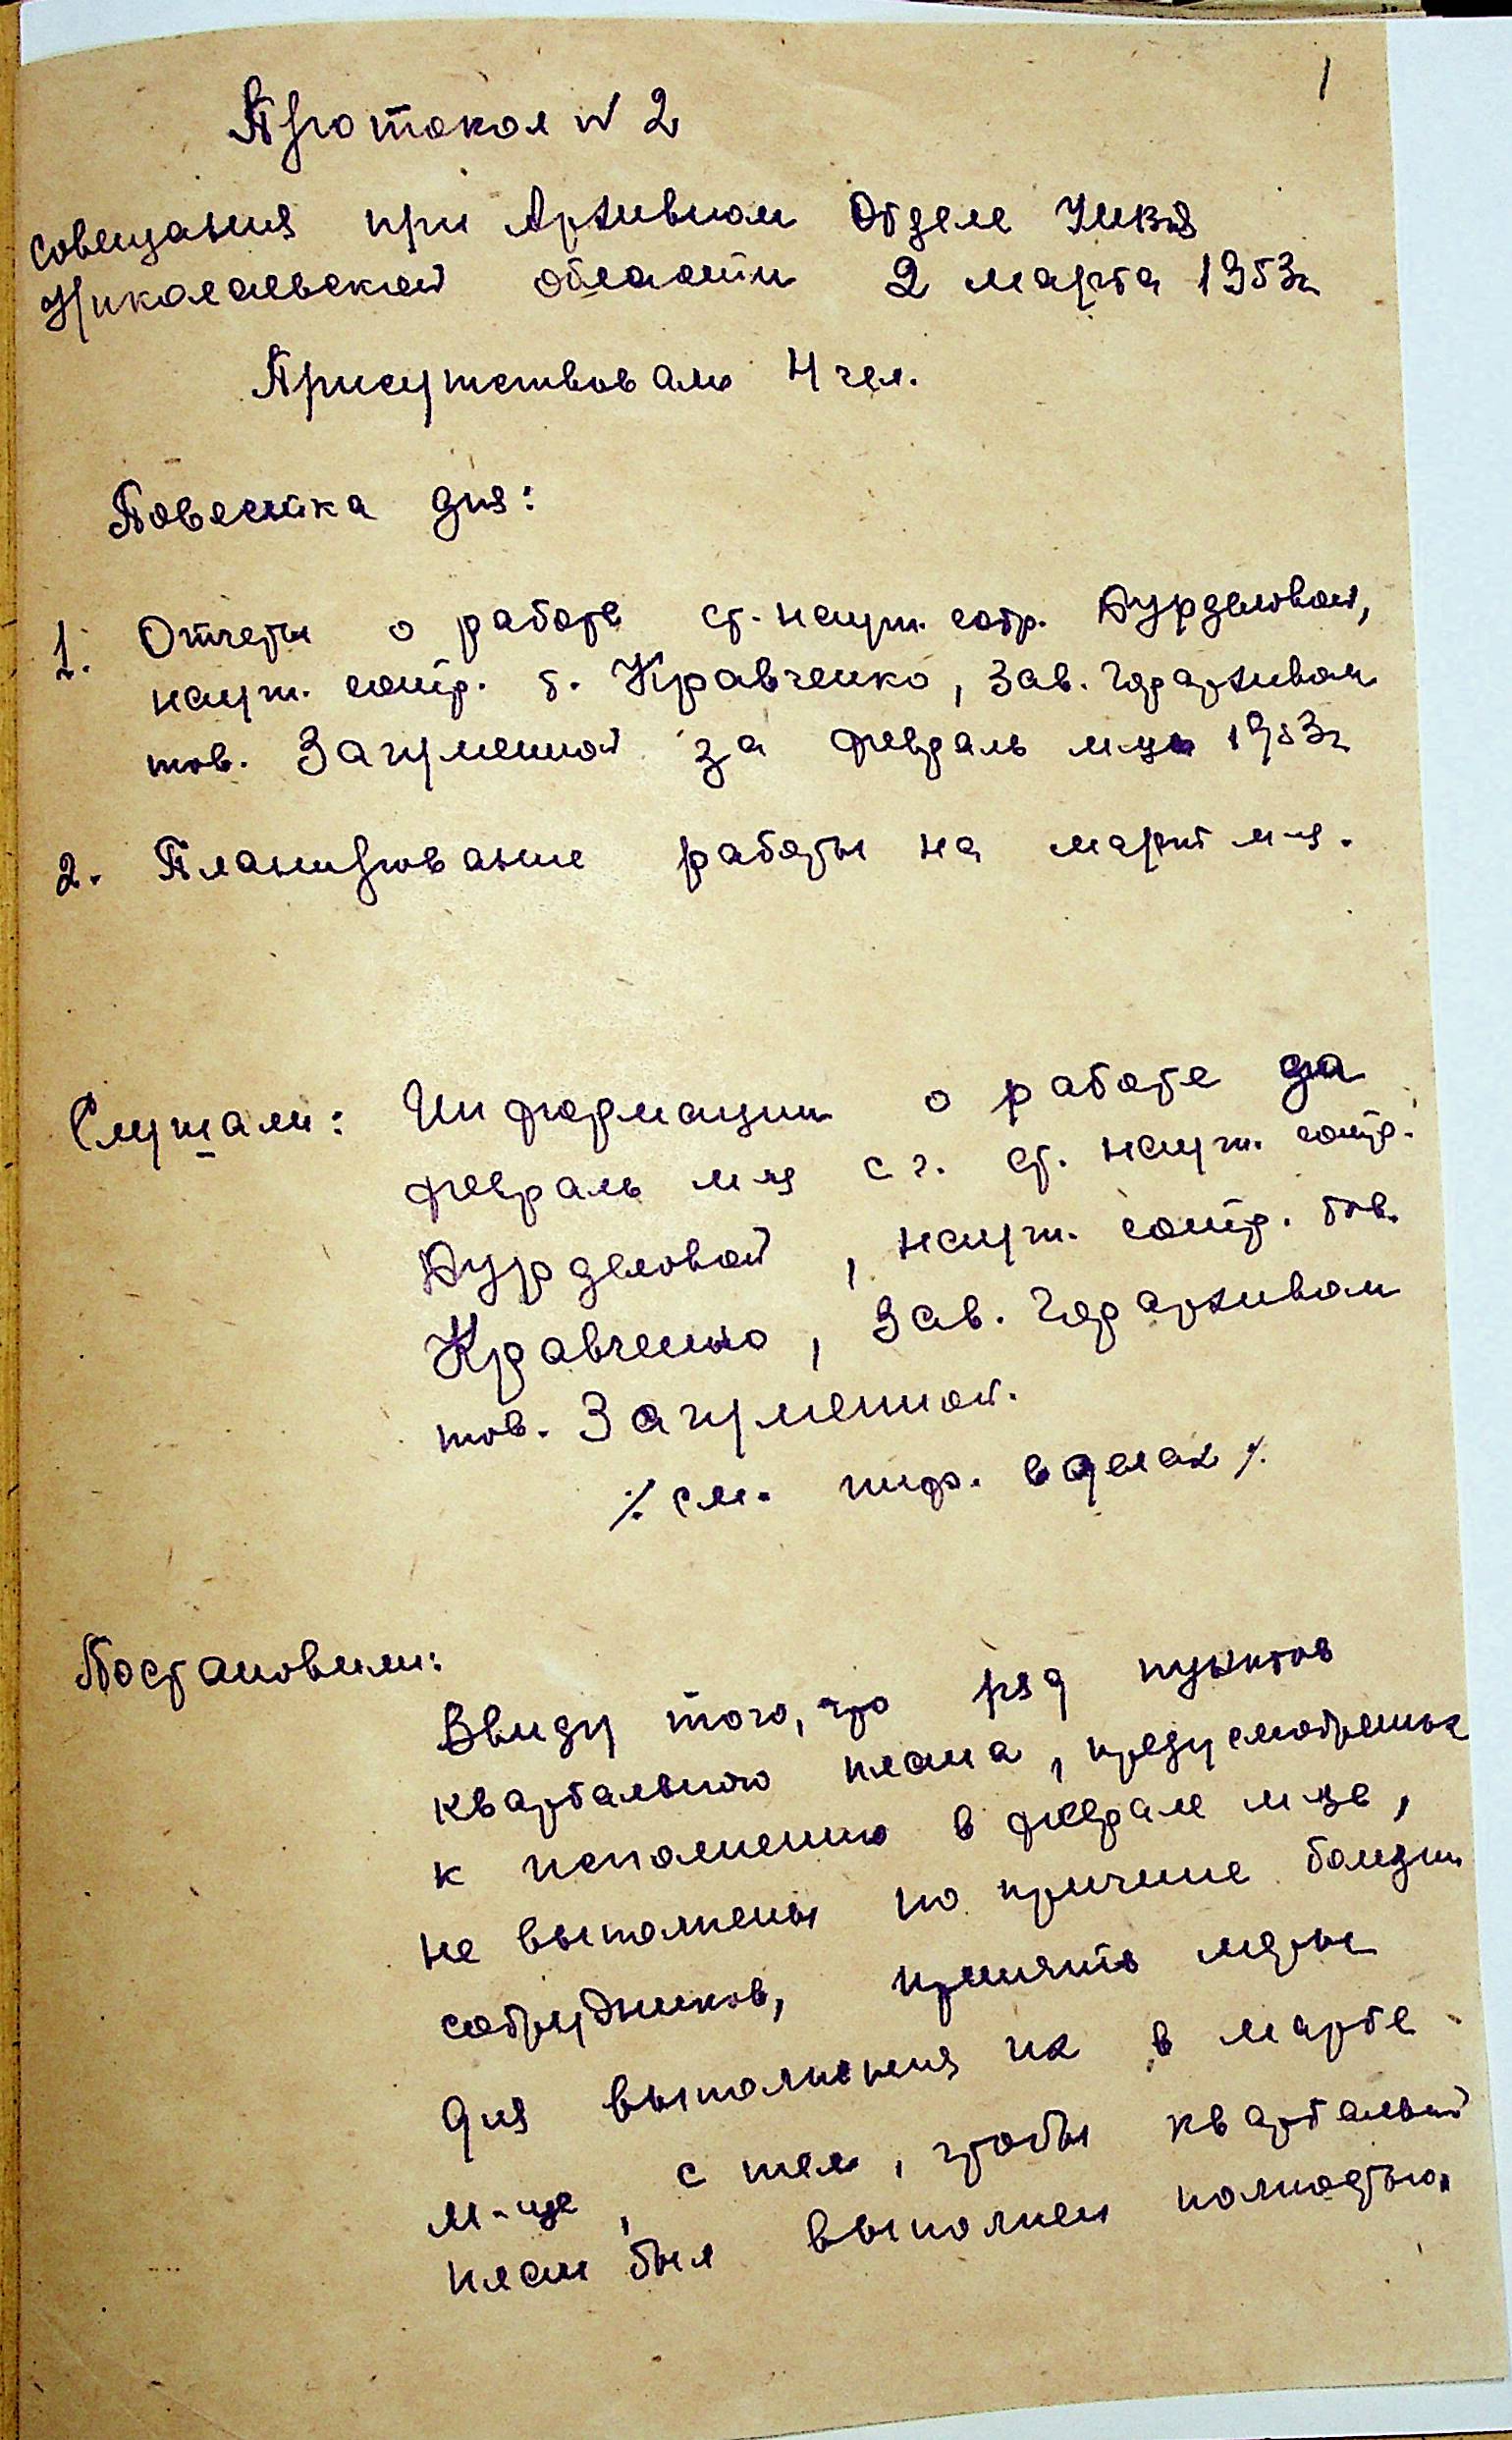 1
Протокол № 2
совещания при Архивном Отделе УМВД
Николаевской области 2 марта 1953г
Присутствовали 4 чел.
Повестка дня:
1. Отчеты о работе ст. науч. сотр. Дурделовой,
науч. сотр. т. Кравченко, Зав. Горархивом
тов. Загуменной за февраль м-ц 1953г
2. Планирование работы на март м-ц.
Слушали: Информации о работе за
февраль м-ц с.г. ст. науч. сотр.
Дурделовой, науч. сотр. тов.
Кравченко, Зав. Горархивом
тов. Загуменной.
·/. см. инф. в делах ·/.
Постановили:
Ввиду того, что ряд пунктов
квартального плана, предусмотренных
к исполнению в феврале м-це,
не выполнены по причине болезни
сотрудников, принять меры
для выполнения их в марте
м-це, с тем, чтобы квартальный
план был выполнен полностью.